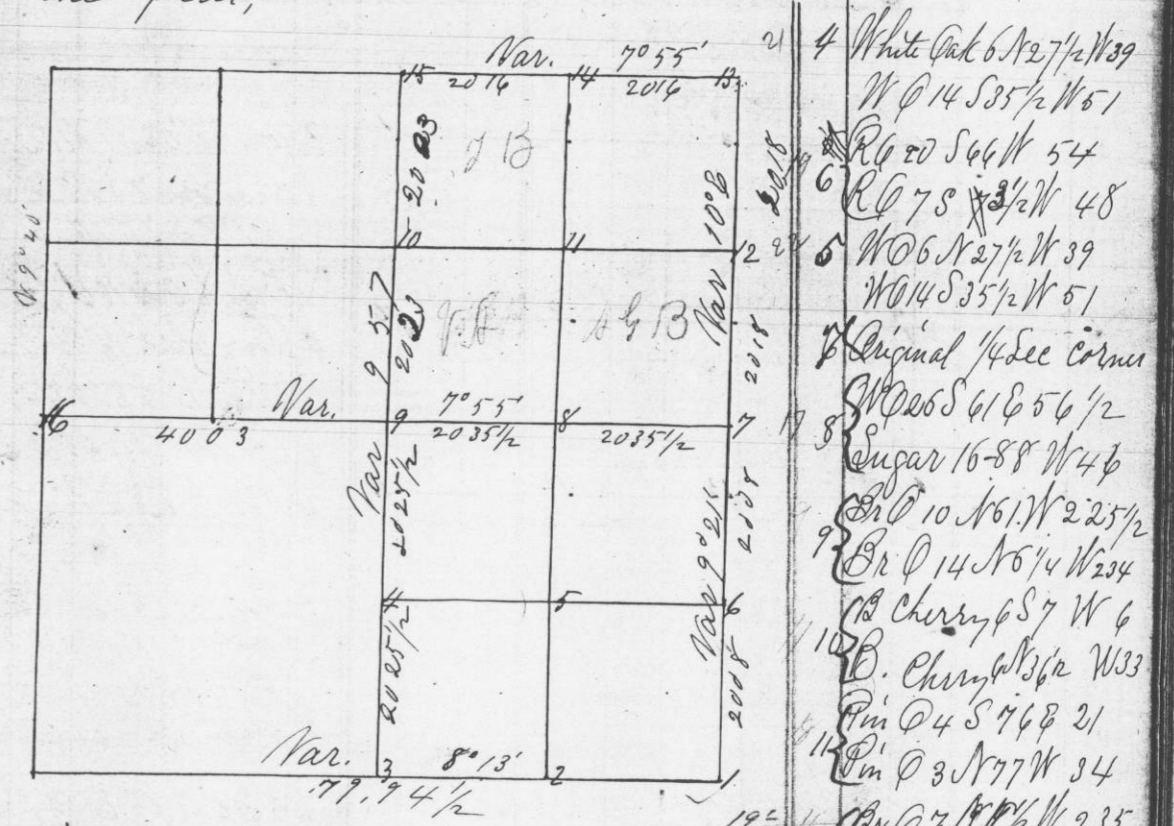 Var. 7° 55'
15 2016 14 2016 13
2023
J B
Var 10° E
2018
10 11 12
9 57
2023
A G B
Var
2018
16 Var. 9 7° 55' 8 7
4003 2035 1/2 2035 1/2
Var
2025 1/2
Var 9° 21'
2008
4 5 6
2025 1/2
2008
Var. 3 8° 13' 2 1
79.94 1/2
21 4 White Oak 6 N 27 1/2 W 39
W O 14 S 35 1/2 W 51
R O 20 S 66 W 54
6 R O 7 S 73 1/2 W 48
5 W O 6 N 27 1/2 W 39
W O 14 S 35 1/2 W 51
7 Original 1/4 Sec corner
17 8 W O 26 S 61 E 56 1/2
Sugar 16-88 W 46
9 Br O 10 N 61. W 225 1/2
Br O 14 N 6 1/4 W 234
10 B Cherry 6 S 7 W 6
B. Cherry 6 N 36 1/2 W 33
11 Pin O 4 S 76 E 21
Pin O 3 N 77 W 34